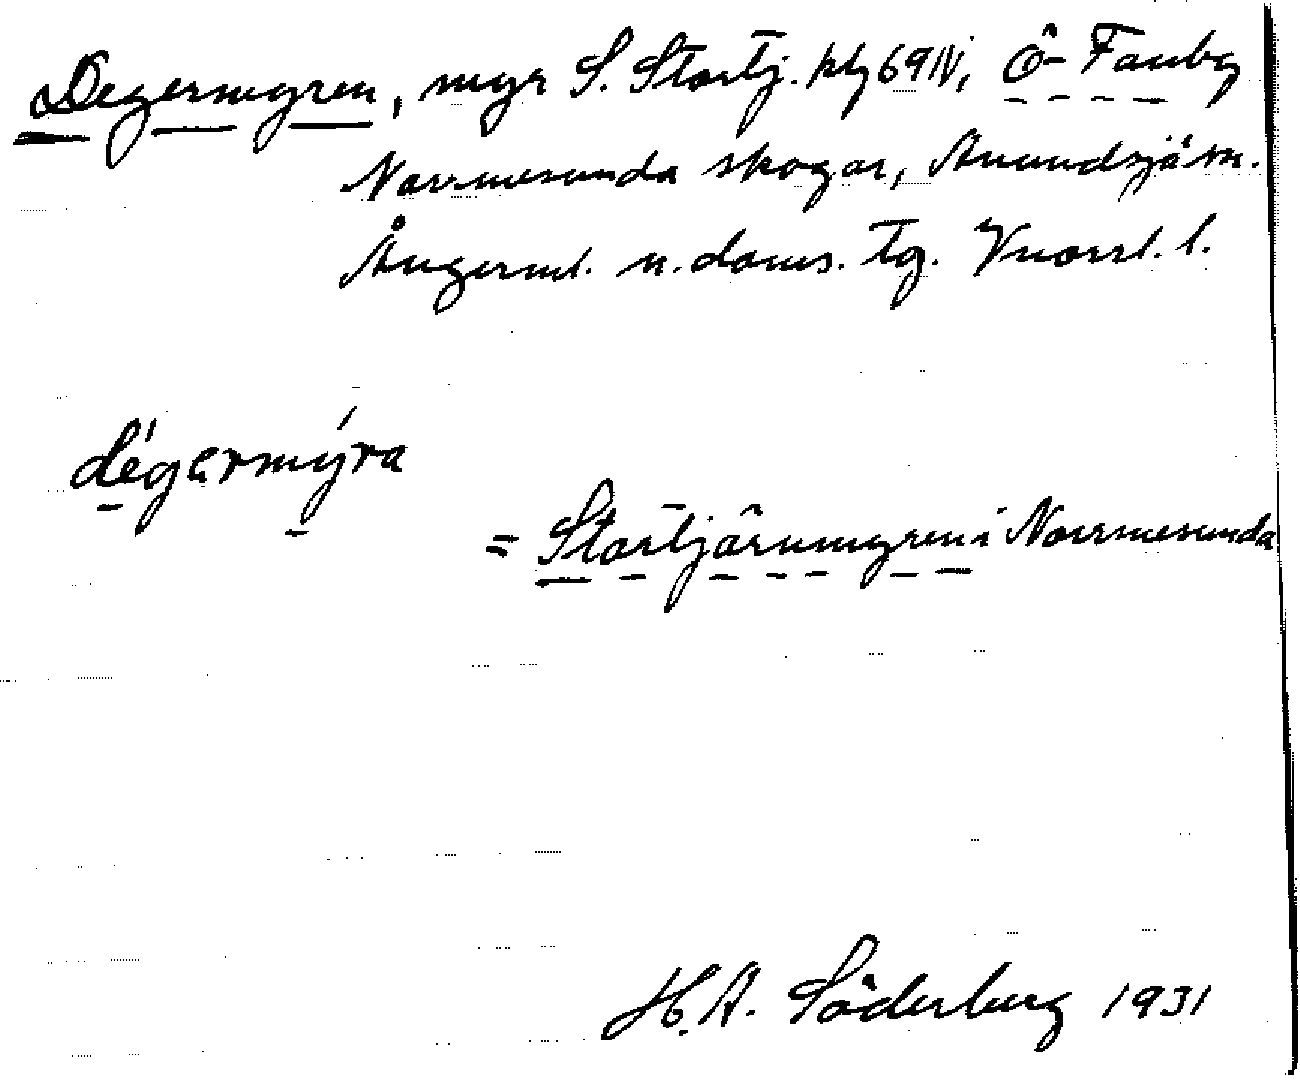 Degermyren, myr S. Stortj. kbl 69 IV, Ö- Fanbg
Norrmesunda skogar, Anundsjö sn.
Ångerml. n. doms. Tg. Vnorrl. l.
dégermýra
= Stortjärnmyren i Norrmesunda
H. A. Söderberg 1931